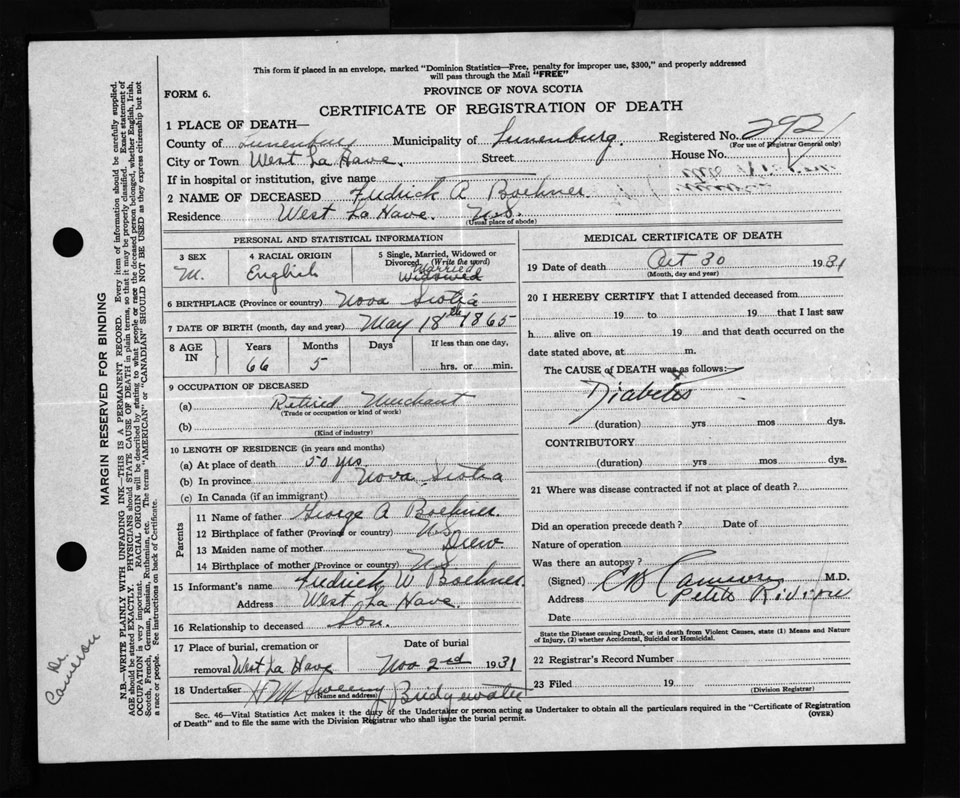 This form if placed in an envelope, marked "Dominion Statistics—Free, penalty for improper use, $300," and properly addressed
will pass through the Mail "FREE"
FORM 6.
PROVINCE OF NOVA SCOTIA
CERTIFICATE OF REGISTRATION OF DEATH
1 PLACE OF DEATH—
County of Lunenburg Municipality of Lunenburg. Registered No. 292
(For use of Registrar General only)
City or Town West La Have. Street House No.
If in hospital or institution, give name
2 NAME OF DECEASED Fedrick A Boehner
Residence West La Have. N.S.
(Usual place of abode)
PERSONAL AND STATISTICAL INFORMATION
3 SEX 4 RACIAL ORIGIN 5 Single, Married, Widowed or Divorced. (Write the word)
M. English Married Widowed
6 BIRTHPLACE (Province or country) Nova Scotia
7 DATE OF BIRTH (month, day and year) May 18th 1865
8 AGE IN Years Months Days If less than one day,
66 5 hrs. or min.
9 OCCUPATION OF DECEASED
(a) Retired Merchant
(Trade or occupation or kind of work)
(b)
(Kind of industry)
10 LENGTH OF RESIDENCE (in years and months)
(a) At place of death 50 yrs
(b) In province Nova Scotia
(c) In Canada (if an immigrant)
Parents
11 Name of father George A Boehner
12 Birthplace of father (Province or country) N.S
13 Maiden name of mother Drew
14 Birthplace of mother (Province or country) N.S
15 Informant's name Fedrick W Boehner
Address West La Have.
16 Relationship to deceased Son.
17 Place of burial, cremation or Date of burial
removal West La Have Nov 2nd 1931
18 Undertaker Bridgewater
(Name and address)
MEDICAL CERTIFICATE OF DEATH
19 Date of death Oct 30 1931
(Month, day and year)
20 I HEREBY CERTIFY that I attended deceased from
19 to 19 that I last saw
h alive on 19 and that death occurred on
date stated above, at m.
The CAUSE of DEATH was as follows:
Diabetes
(duration) yrs mos dys.
CONTRIBUTORY
(duration) yrs. mos dys.
21 Where was disease contracted if not at place of death?
Did an operation precede death? Date of
Nature of operation
Was there an autopsy?
(Signed) C B Cameron M.D.
Address Petite Riviere
Date
State the Disease causing Death, or in death from Violent Causes, state (1) Means and Nature
of Injury, (2) whether Accidental, Suicidal or Homicidal.
22 Registrar's Record Number
23 Filed 19
(Division Registrar)
Sec. 46—Vital Statistics Act makes it the duty of the Undertaker or person acting as Undertaker to obtain all the particulars required in the "Certificate of Registration
of Death" and to file the same with the Division Registrar who shall issue the burial permit. (OVER)
MARGIN RESERVED FOR BINDING
N.B.—WRITE PLAINLY WITH UNFADING INK—THIS IS A PERMANENT RECORD. Every item of information should be carefully supplied.
AGE should be stated EXACTLY. PHYSICIANS should STATE CAUSE OF DEATH in plain terms, so that it may be properly classified. Exact statement of
OCCUPATION is very important. RACIAL ORIGIN will be described by stating to what people or race the deceased person belonged, whether English, Irish,
Scotch, French, German, Russian, Ruthenian, etc. The terms "AMERICAN" or "CANADIAN" SHOULD NOT BE USED as they express citizenship but not
a race or people. See instructions on back of Certificate.
Dr Cameron